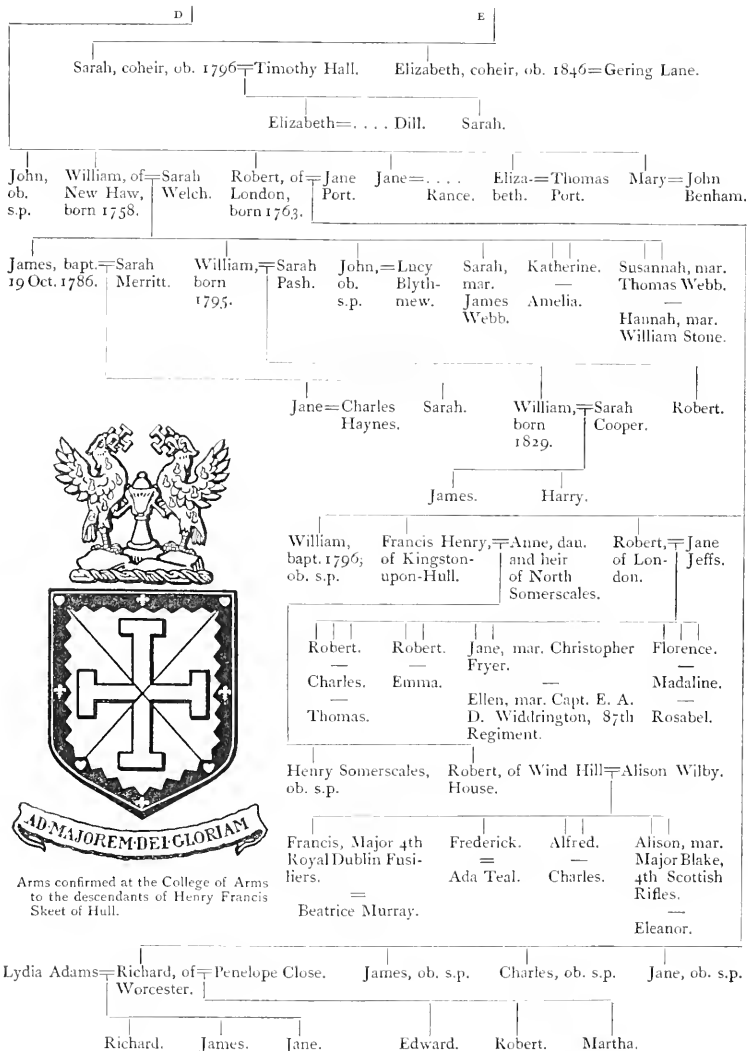 D E
Sarah, coheir, ob. 1796=Timothy Hall. Elizabeth, coheir, ob. 1846=Gering Lane.
Elizabeth=.... Dill. Sarah.
John, ob. s.p.
William, of New Haw, born 1758.
=Sarah Welch.
Robert, of London, born 1763.
=Jane Port.
Jane=.... Rance.
Eliza-beth.
=Thomas Port.
Mary=John Benham.
James, bapt. 19 Oct. 1786.
=Sarah Merritt.
William, born 1795.
=Sarah Pash.
John, ob. s.p.
=Lucy Blyth-mew.
Sarah, mar. James Webb.
Katherine.
—
Amelia.
Susannah, mar. Thomas Webb.
—
Hannah, mar. William Stone.
Jane=Charles Haynes.
Sarah.
William, born 1829.
=Sarah Cooper.
Robert.
James. Harry.
William, bapt. 1796; ob. s.p.
Francis Henry, of Kingston-upon-Hull.
=Anne, dau. and heir of North Somerscales.
Robert, of Lon-don.
=Jane Jeffs.
Robert.
—
Charles.
—
Thomas.
Robert.
—
Emma.
Jane, mar. Christopher Fryer.
—
Ellen, mar. Capt. E. A. D. Widdrington, 87th Regiment.
Florence.
—
Madaline.
—
Rosabel.
Henry Somerscales, ob. s.p.
Robert, of Wind Hill House.
=Alison Wilby.
Francis, Major 4th Royal Dublin Fusi-liers.
=
Beatrice Murray.
Frederick.
=
Ada Teal.
Alfred.
—
Charles.
Alison, mar. Major Blake, 4th Scottish Rifles.
—
Eleanor.
AD·MAJOREM·DEI·GLORIAM
Arms confirmed at the College of Arms
to the descendants of Henry Francis
Skeet of Hull.
Lydia Adams=Richard, of Worcester.
=Penelope Close.
James, ob. s.p. Charles, ob. s.p. Jane, ob. s.p.
Richard. James. Jane. Edward. Robert. Martha.